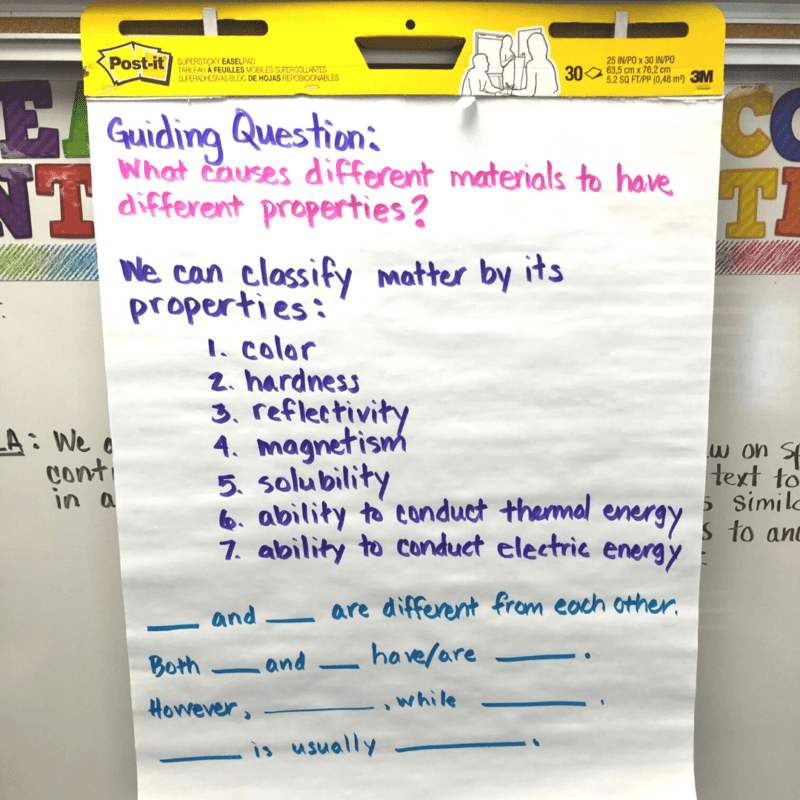 Post-it
SUPERSTICKY EASELPAD
TABLEAU À FEUILLES MOBILES SUPERCOLLANTES
SUPERADHESIVAS BLOC DE HOJAS REPOSICIONABLES
30
25 IN/PO x 30 IN/PO
63,5 cm x 76,2 cm
5.2 SQ FT/PI² (0,48 m²)
3M
Guiding Question:
What causes different materials to have
different properties?
We can classify matter by its
properties:
1. color
2. hardness
3. reflectivity
4. magnetism
5. solubility
6. ability to conduct thermal energy
7. ability to conduct electric energy
___ and ___ are different from each other.
Both ___ and ___ have/are ___.
However, ___, while ___.
___ is usually ___.
LA: We
in a
on
text to
to